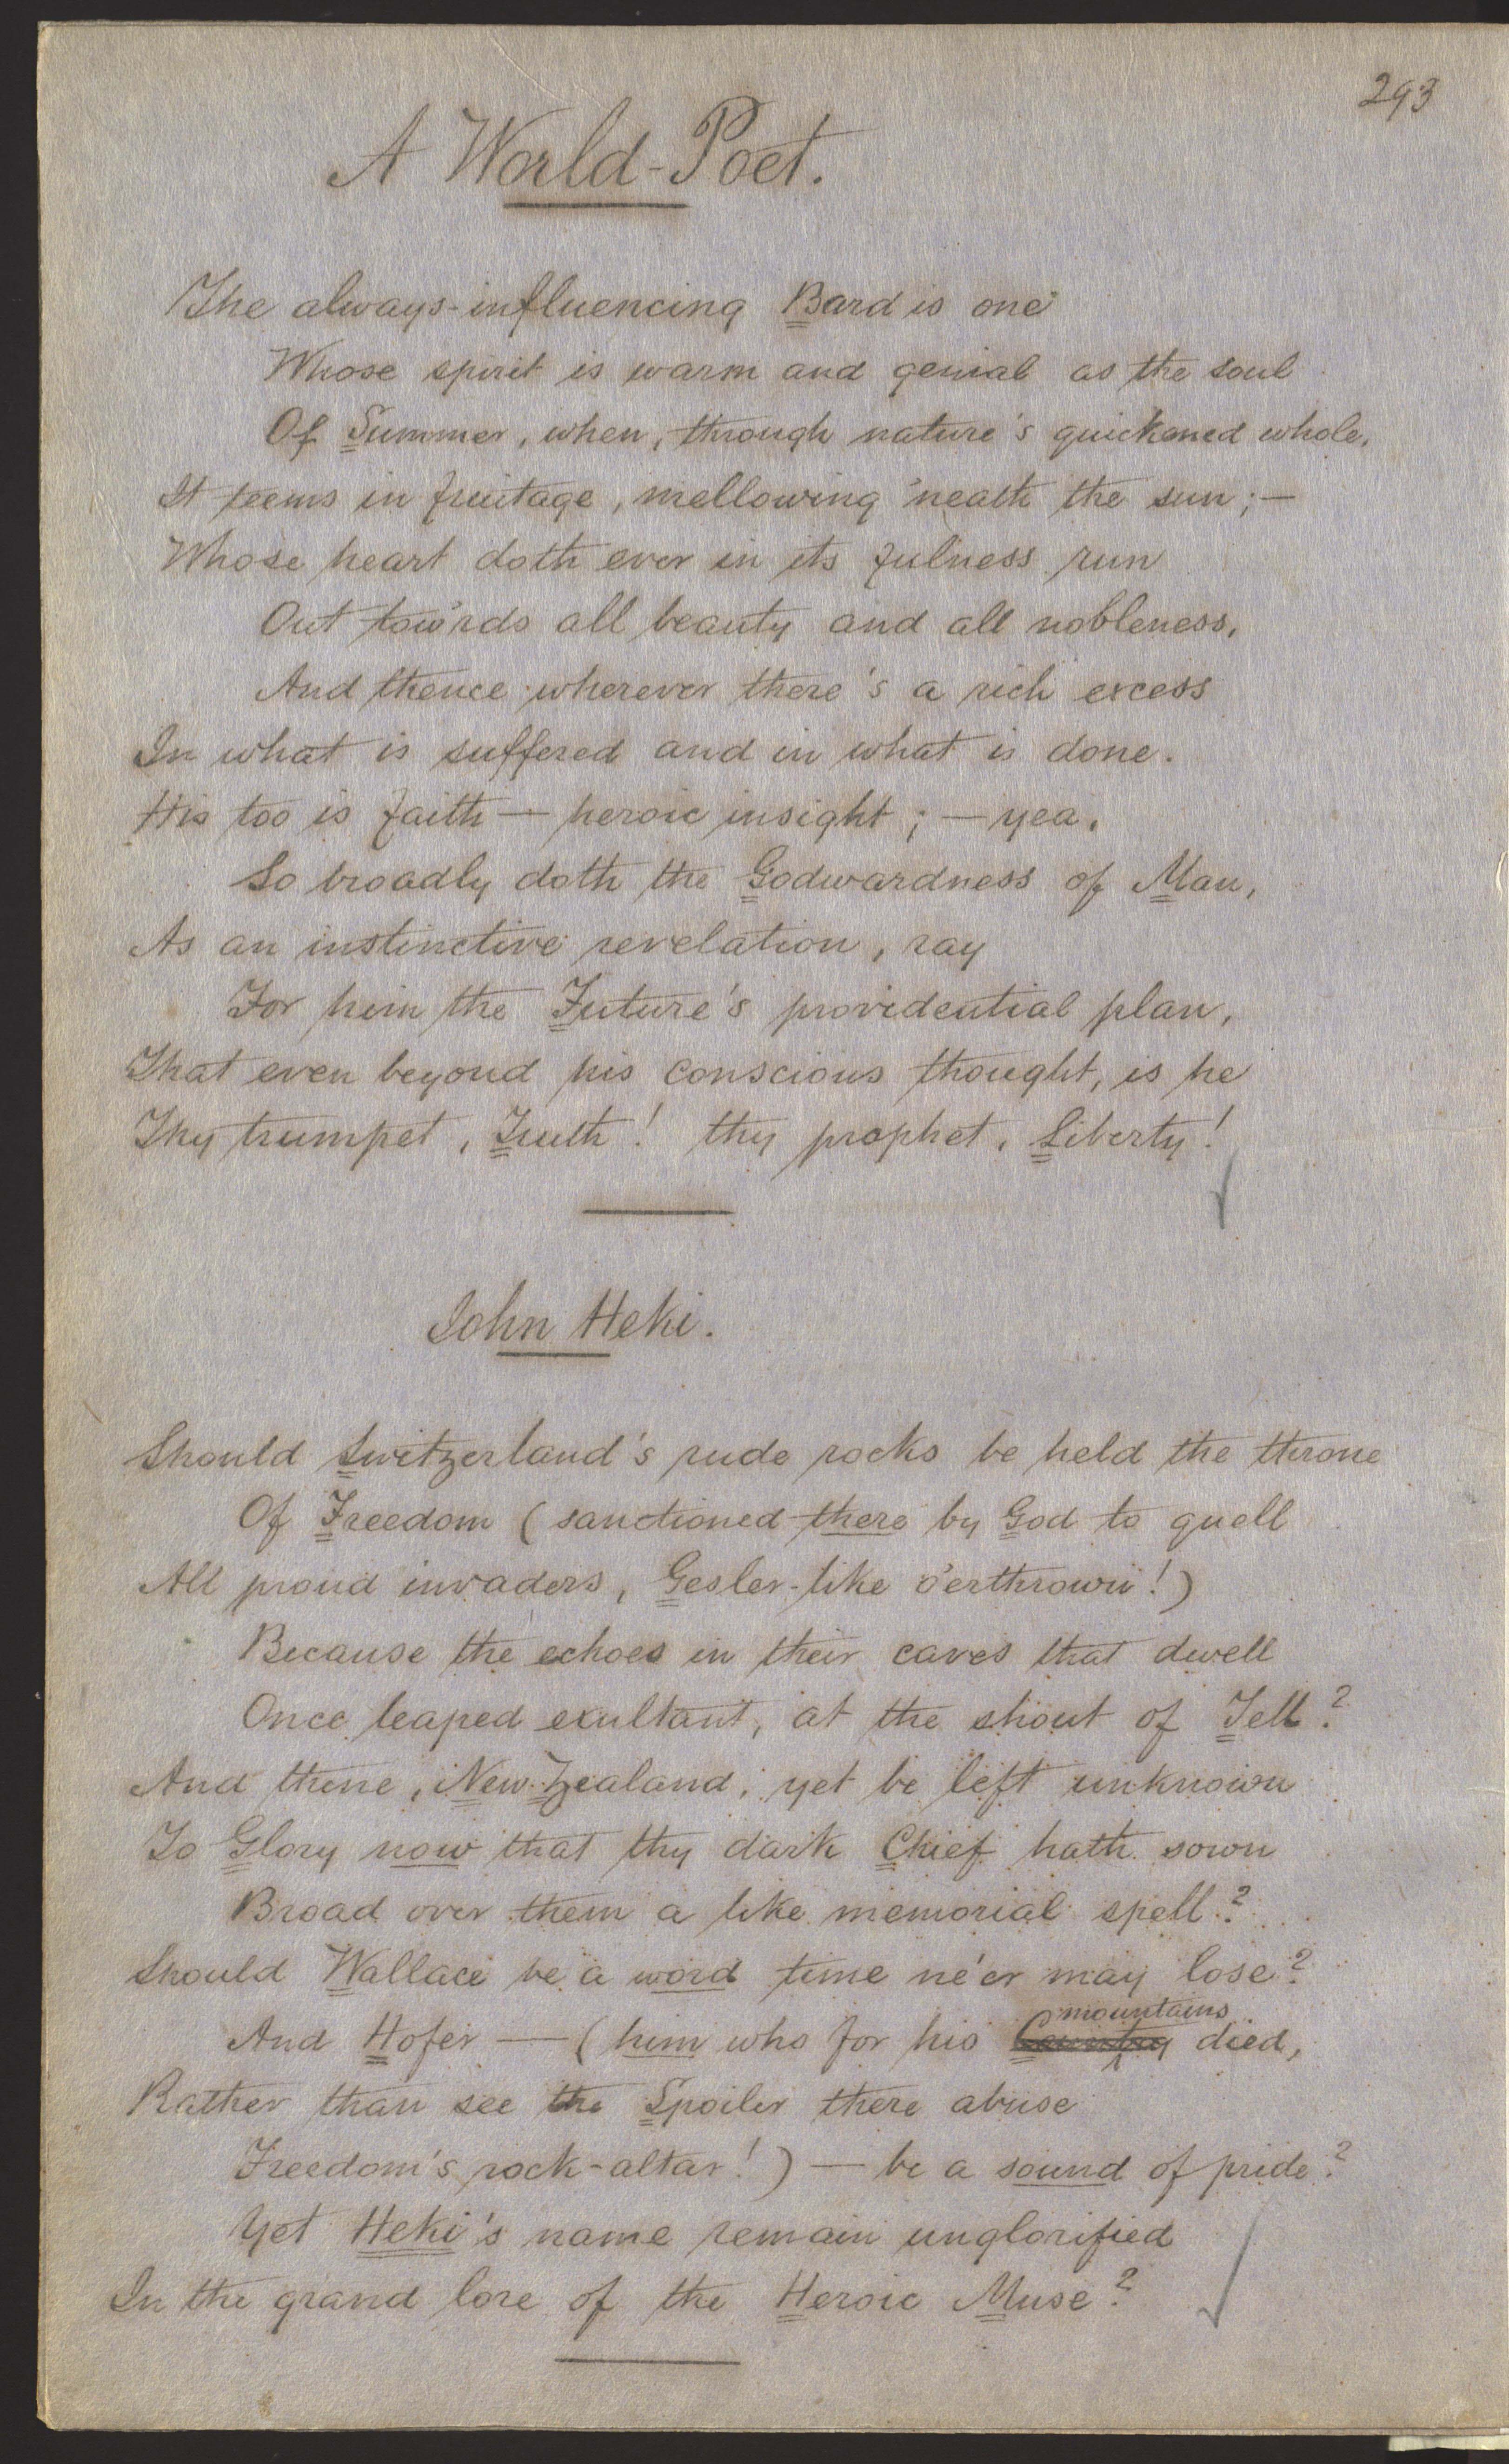 293
A World-Poet.
The always-influencing Bard is one
Whose spirit is warm and genial as the soul
Of Summer, when, through nature's quickened whole,
It teems in fruitage, mellowing 'neath the sun;—
Whose heart doth ever in its fulness run
Out tow'rds all beauty and all nobleness,
And thence wherever there's a rich excess
In what is suffered and in what is done.
His too is faith — heroic insight; — yea,
So broadly doth the Godwardness of Man,
As an instinctive revelation, ray
For him the Future's providential plan,
That even beyond his conscious thought, is he
Thy trumpet, Truth! thy prophet, Liberty!
John Heki.
Should Switzerland's rude rocks be held the throne
Of Freedom (sanctioned there by God to quell
All proud invaders, Gesler-like o'erthrown!)
Because the echoes in their caves that dwell
Once leaped exultant, at the shout of Tell?
And thine, New Zealand, yet be left unknown
To Glory now that thy dark Chief hath sown
Broad over them a like memorial spell?
Should Wallace be a word time ne'er may lose?
mountains
And Hofer — (him who for his Country died,
Rather than see the Spoiler there abuse
Freedom's rock-altar!) — be a sound of pride?
Yet Heki's name remain unglorified
In the grand lore of the Heroic Muse?